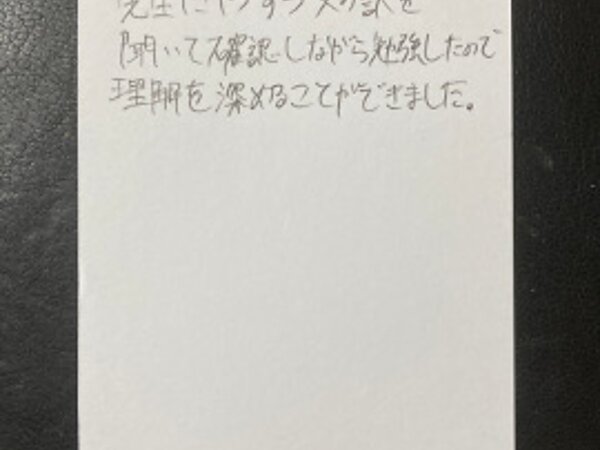 先生に ずつ文の訳を
聞いて確認しながら勉強したので
理解を深めることができました。